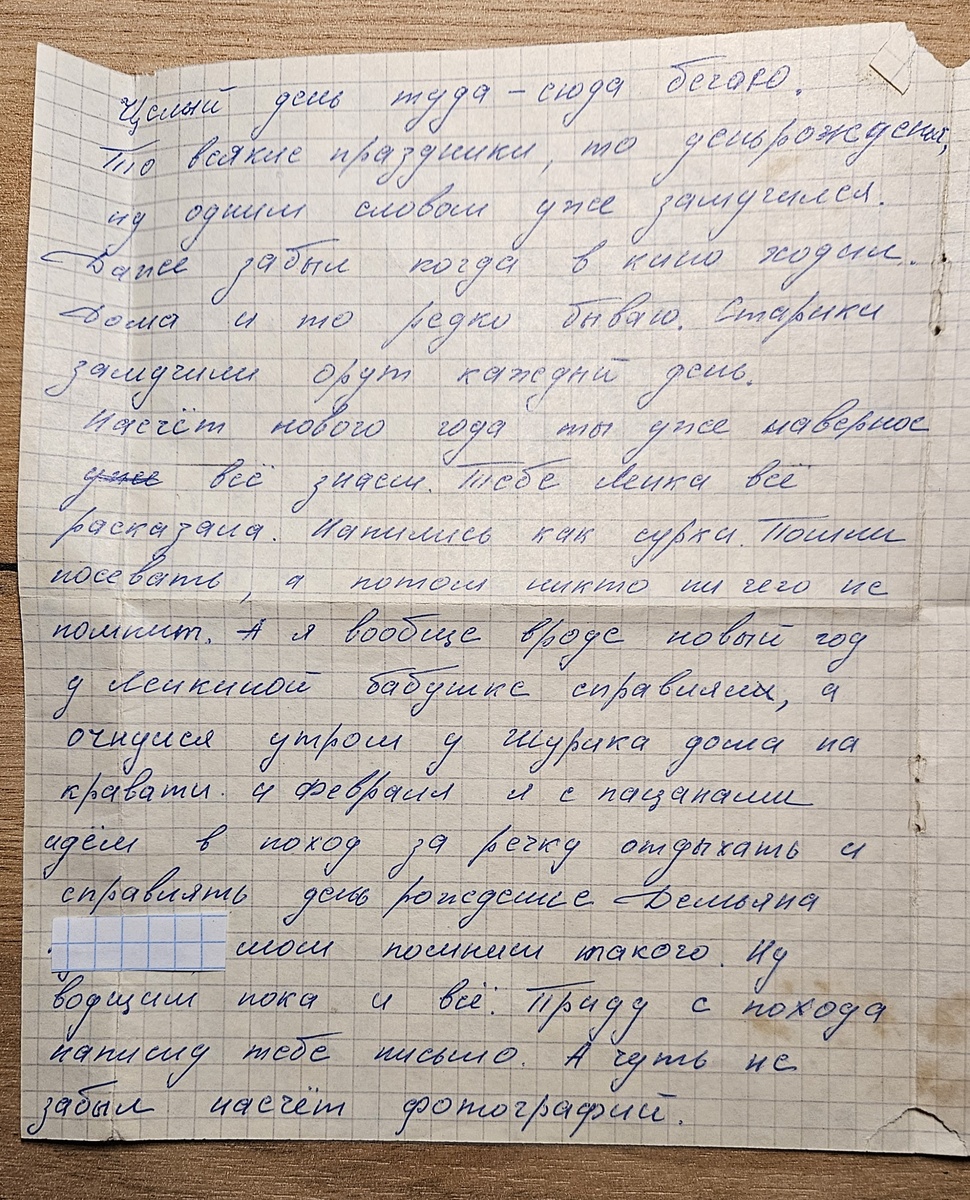 Целый день туда-сюда бегаю.
То всякие праздники, то деньрождений,
ну одним словом уже замучился.
Даже забыл когда в кино ходил.
Дома и то редко бываю. Старики
замучили орут каждый день.
Насчёт нового года ты уже наверное
уже всё знаеш. Тебе Ленка всё
расказала. Напились как сурки. Пошли
посевать, а потом никто ни чего не
помнит. А я вообще вроде новый год
у Ленкиной бабушке справляли, а
очнулся утром у Шурика дома на
кравати. 4 февраля я с пацанами
идём в поход за речку отдыхать и
справлять день рождение Демьяна
помниш такого. Ну
вобщим пока и всё. Приду с похода
напишу тебе письмо. А чуть не
забыл насчёт фотографий.